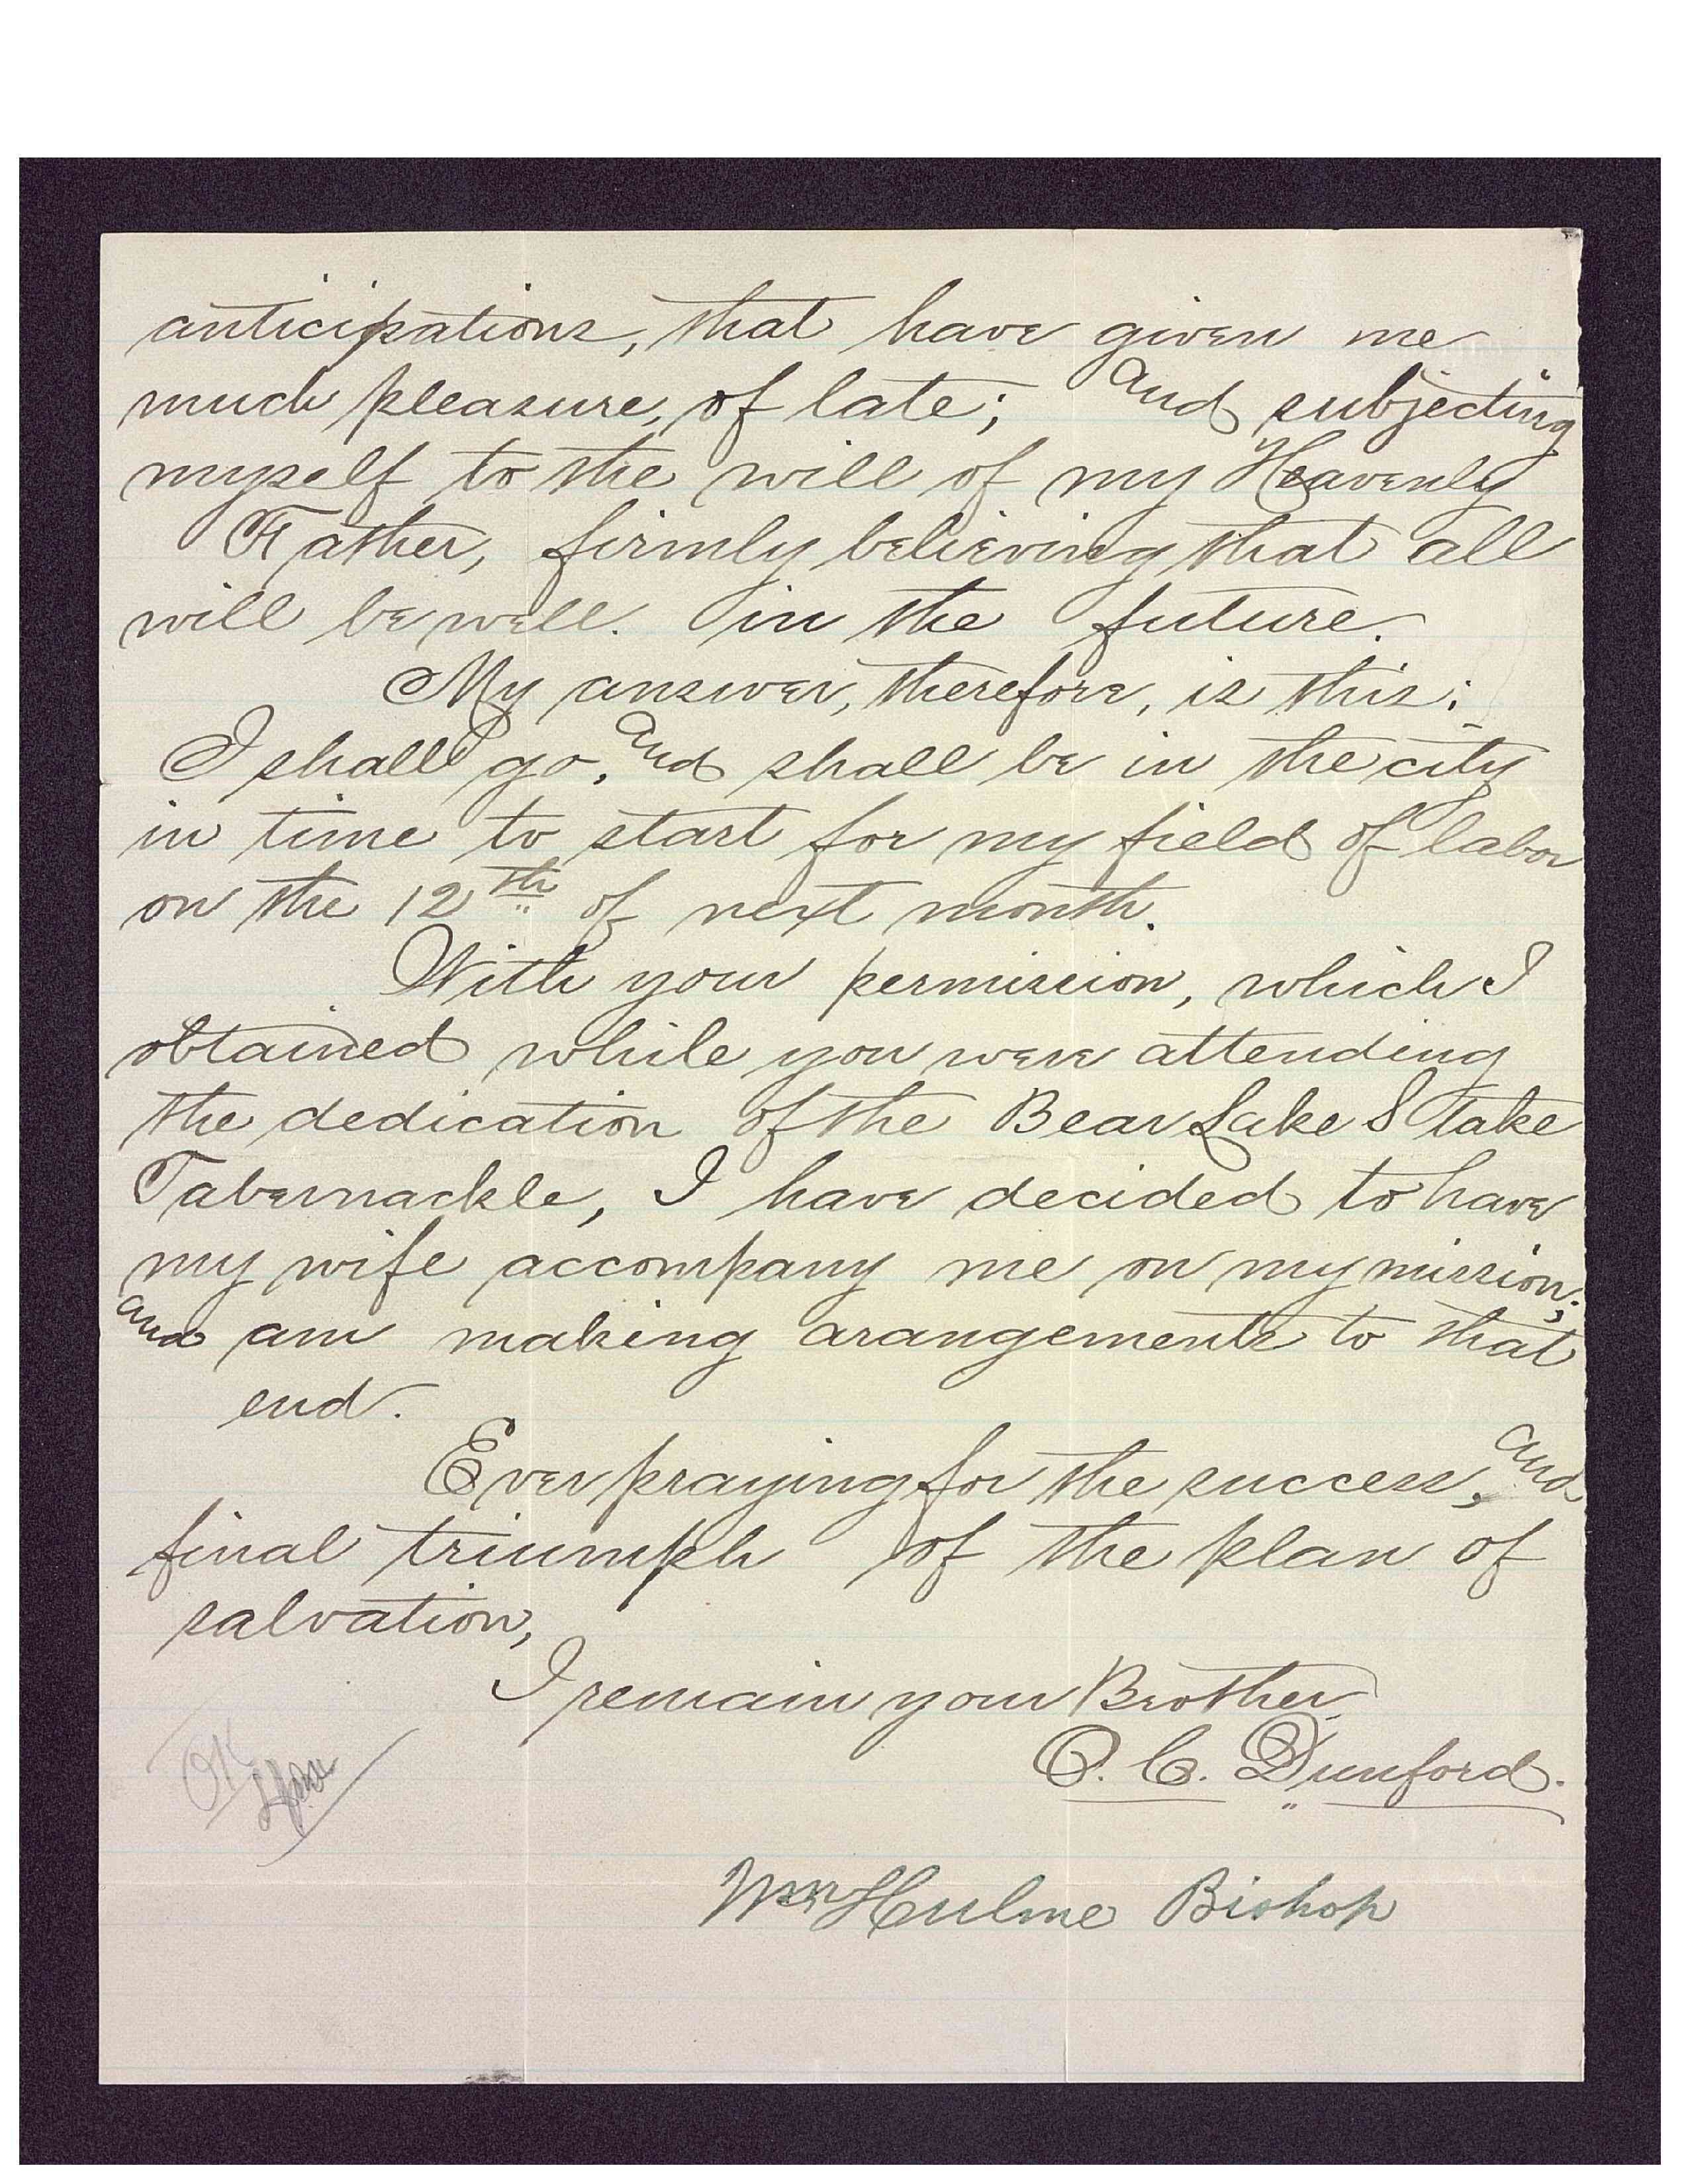 anticipations, that have given me
much pleasure, of late; and subjecting
myself to the will of my Heavenly
Father, firmly believing that all
will be well. in the future.
My answer, therefore, is this:
I shall go, and shall be in the city
in time to start for my field of labor
on the 12th of next month.
With your permission, which I
obtained while you were attending
the dedication of the Bear Lake Stake
Tabernackle, I have decided to have
my wife accompany me on my mission;
and am making arangements to that
end.
Ever praying for the success, and
final triumph of the plan of
salvation,
I remain your Brother
O. C. Dunford.
OK
Wm Hulme Bishop